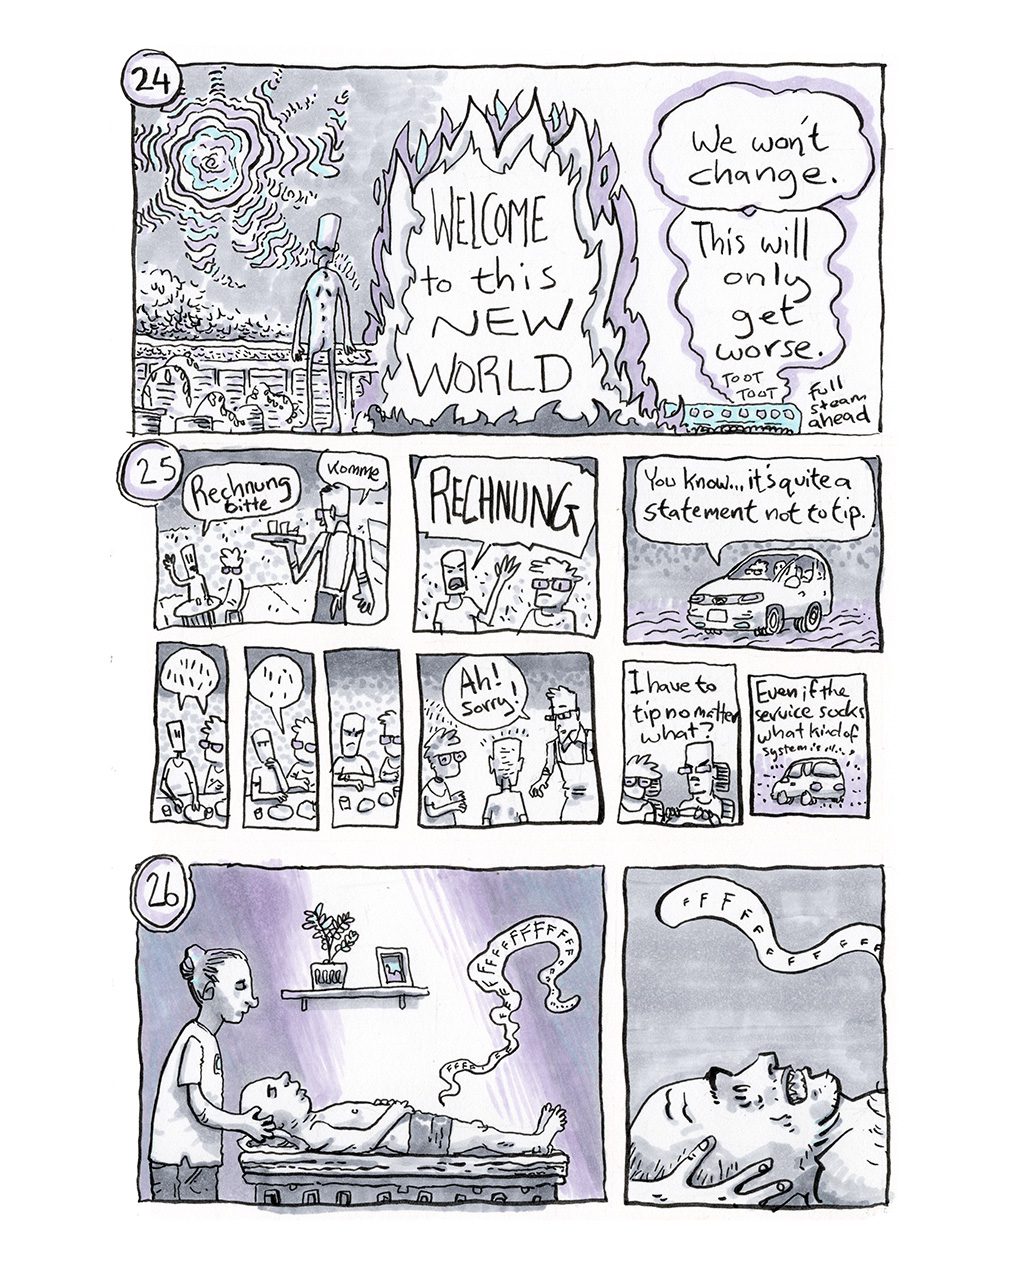 24
WELCOME
to this
NEW
WORLD
We won't
change.
This will
only
get
worse.
TOOT
TOOT
Full
steam
ahead
25
Rechnung
bitte
Komme
RECHNUNG
You know... it's quite a
statement not to tip.
Ah!
Sorry!
I have to
tip no matter
what?
Even if the
service sucks
what kind of
system is
26
F F F F F F F F F F F F
F F F F
F F F F F F F F F